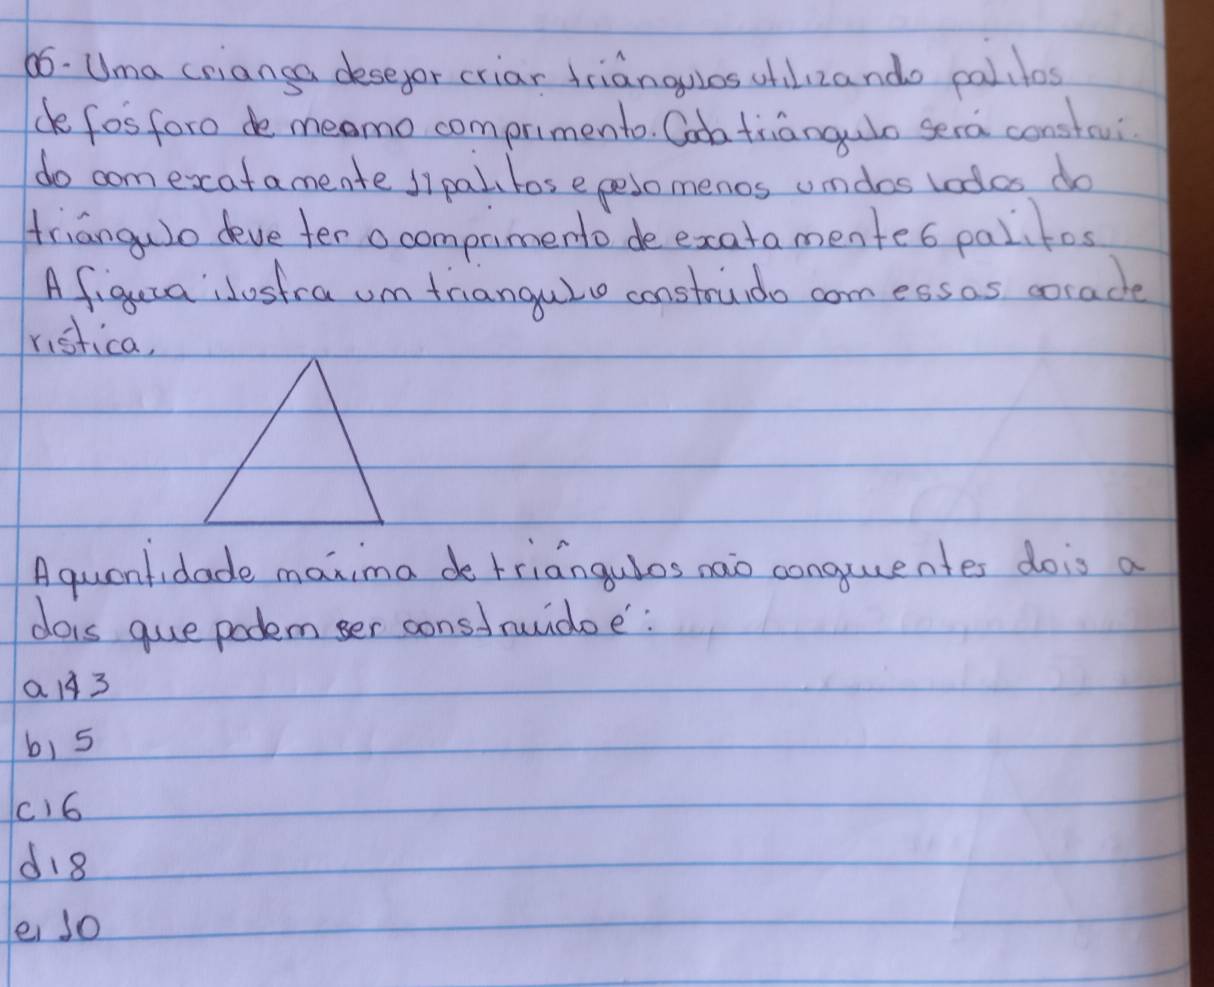 06. Uma criança desejar criar triângulos utilizando palitos
de fósforo de mesmo comprimento. Cada triângulo será construi-
do com exatamente 17 palitos e pelo menos um dos lados do
triângulo deve ter o comprimento de exatamente 6 palitos
A figura ilustra um triangulo construído com essas caracte
rística.
A quantidade máxima de triângulos não congruentes dois a
dois que podem ser construído é:
a) 3
b) 5
c) 6
d) 8
e) 10